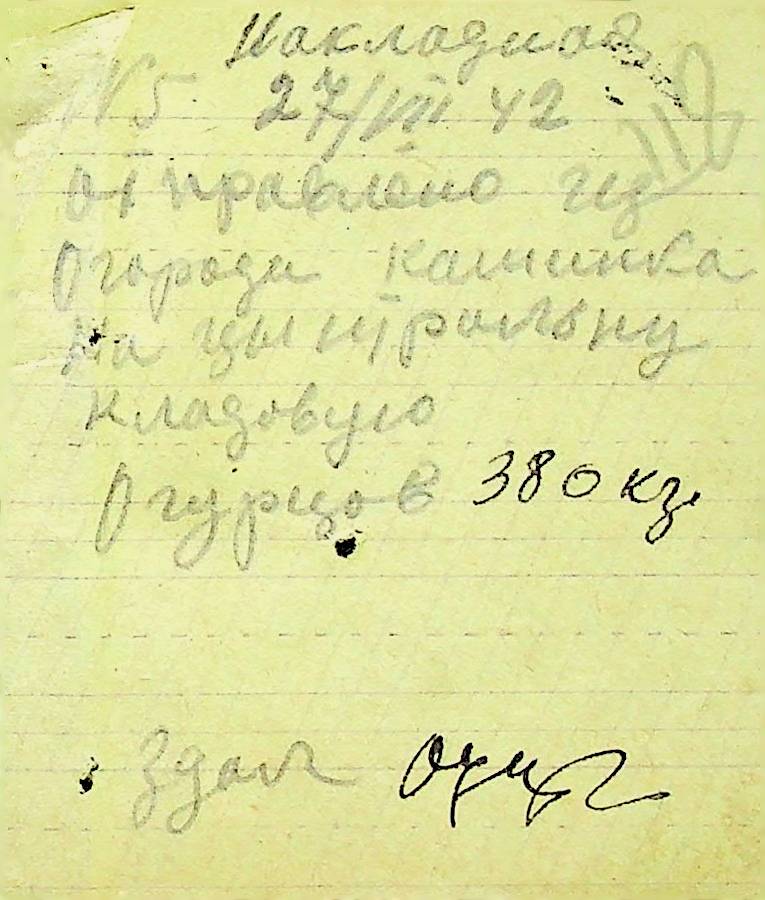 Накладная
N 5 27/VII 42
отправлено из
огорода каминка
на цынтральну
кладовую
огурцов 380 кг
Здал